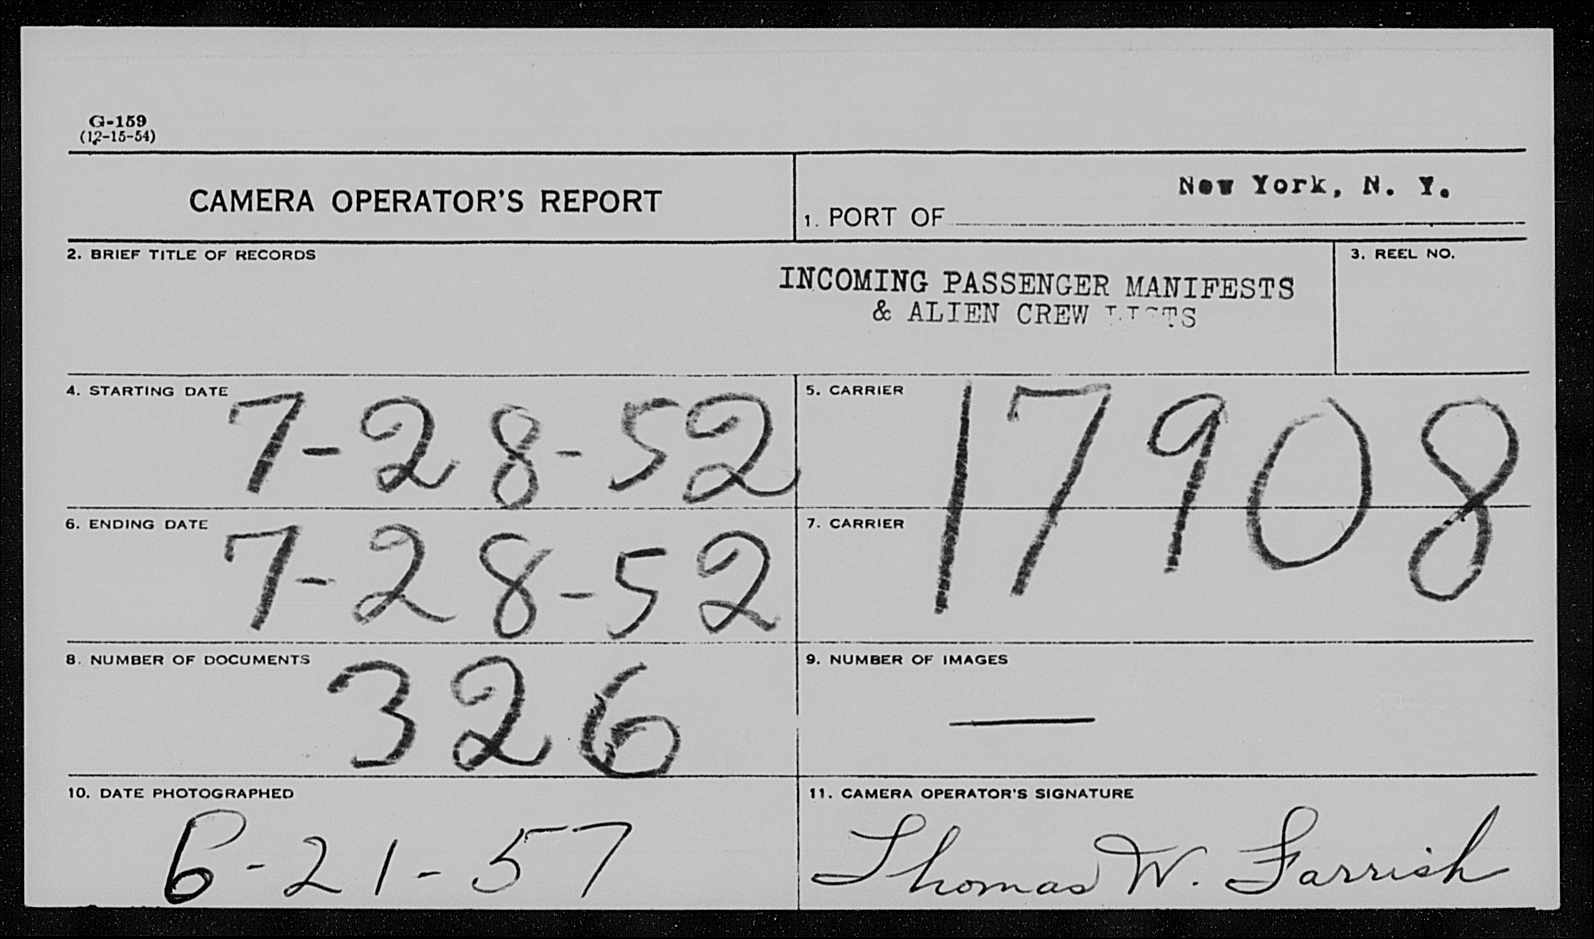 G-159
(12-15-54)
CAMERA OPERATOR'S REPORT
1. PORT OF New York, N. Y.
2. BRIEF TITLE OF RECORDS
INCOMING PASSENGER MANIFESTS
& ALIEN CREW LISTS
3. REEL NO.
4. STARTING DATE 7-28-52
5. CARRIER
17908
6. ENDING DATE 7-28-52
7. CARRIER
8. NUMBER OF DOCUMENTS 326
9. NUMBER OF IMAGES
—
10. DATE PHOTOGRAPHED
6-21-57
11. CAMERA OPERATOR'S SIGNATURE
Thomas W. Farrish